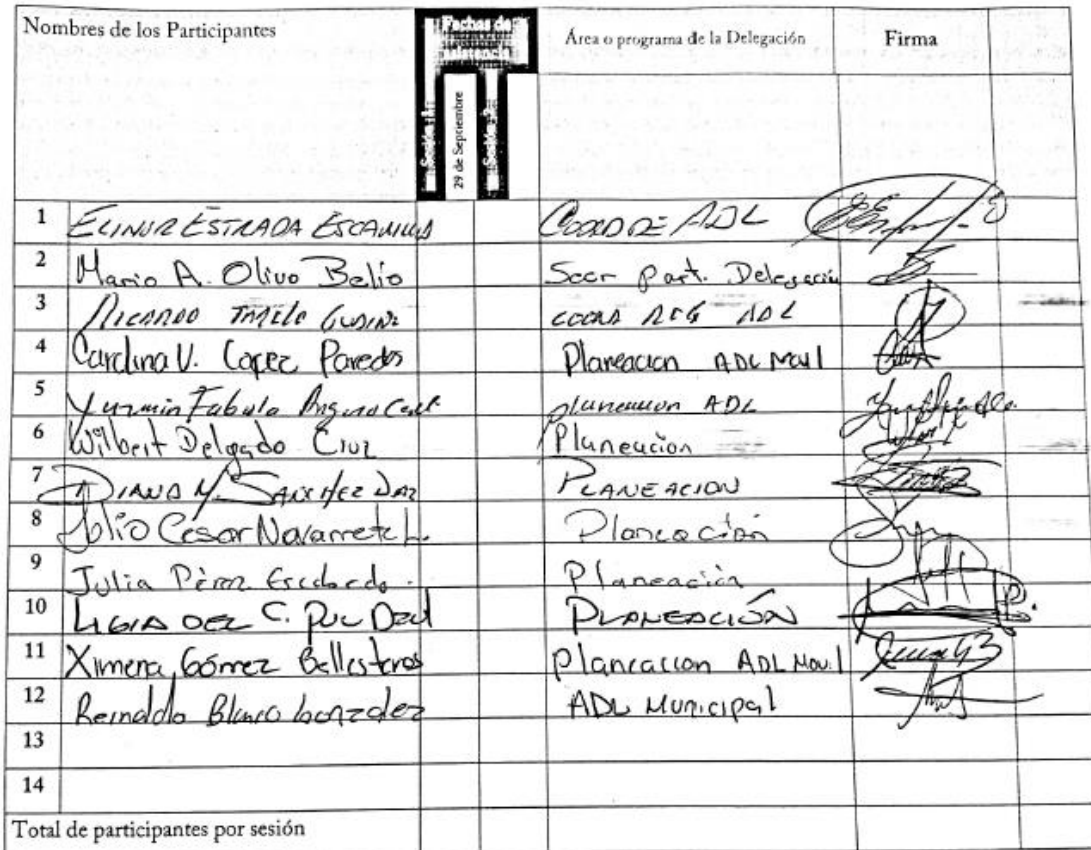 Nombres de los Participantes
Fechas de
Área o programa de la Delegación
Firma
29 de Septiembre
1 ELINUR ESTRADA ESCAMILLA COORD DE ADL
2 Mario A. Olivo Belio Secr part. Delegación
3 RICARDO COORD ADL
4 Carolina V. Lopez Paredes Planeacion ADL Movil
5 Yuzmin Fabiola planeacion ADL
6 Wilbert Delgado Cruz Planeación
7 DIANA M. SANCHEZ DIAZ PLANEACION
8 Julio Cesar Navarrete L. Planeación
9 Julia Pérez Escobedo. Planeación
10 LIGIA DEL C. PUC Dzul PLANEACIÓN
11 Ximena Gómez Ballesteros Planeacion ADL Movil
12 Reinaldo Blanco Gonzalez ADL Municipal
13
14
Total de participantes por sesión